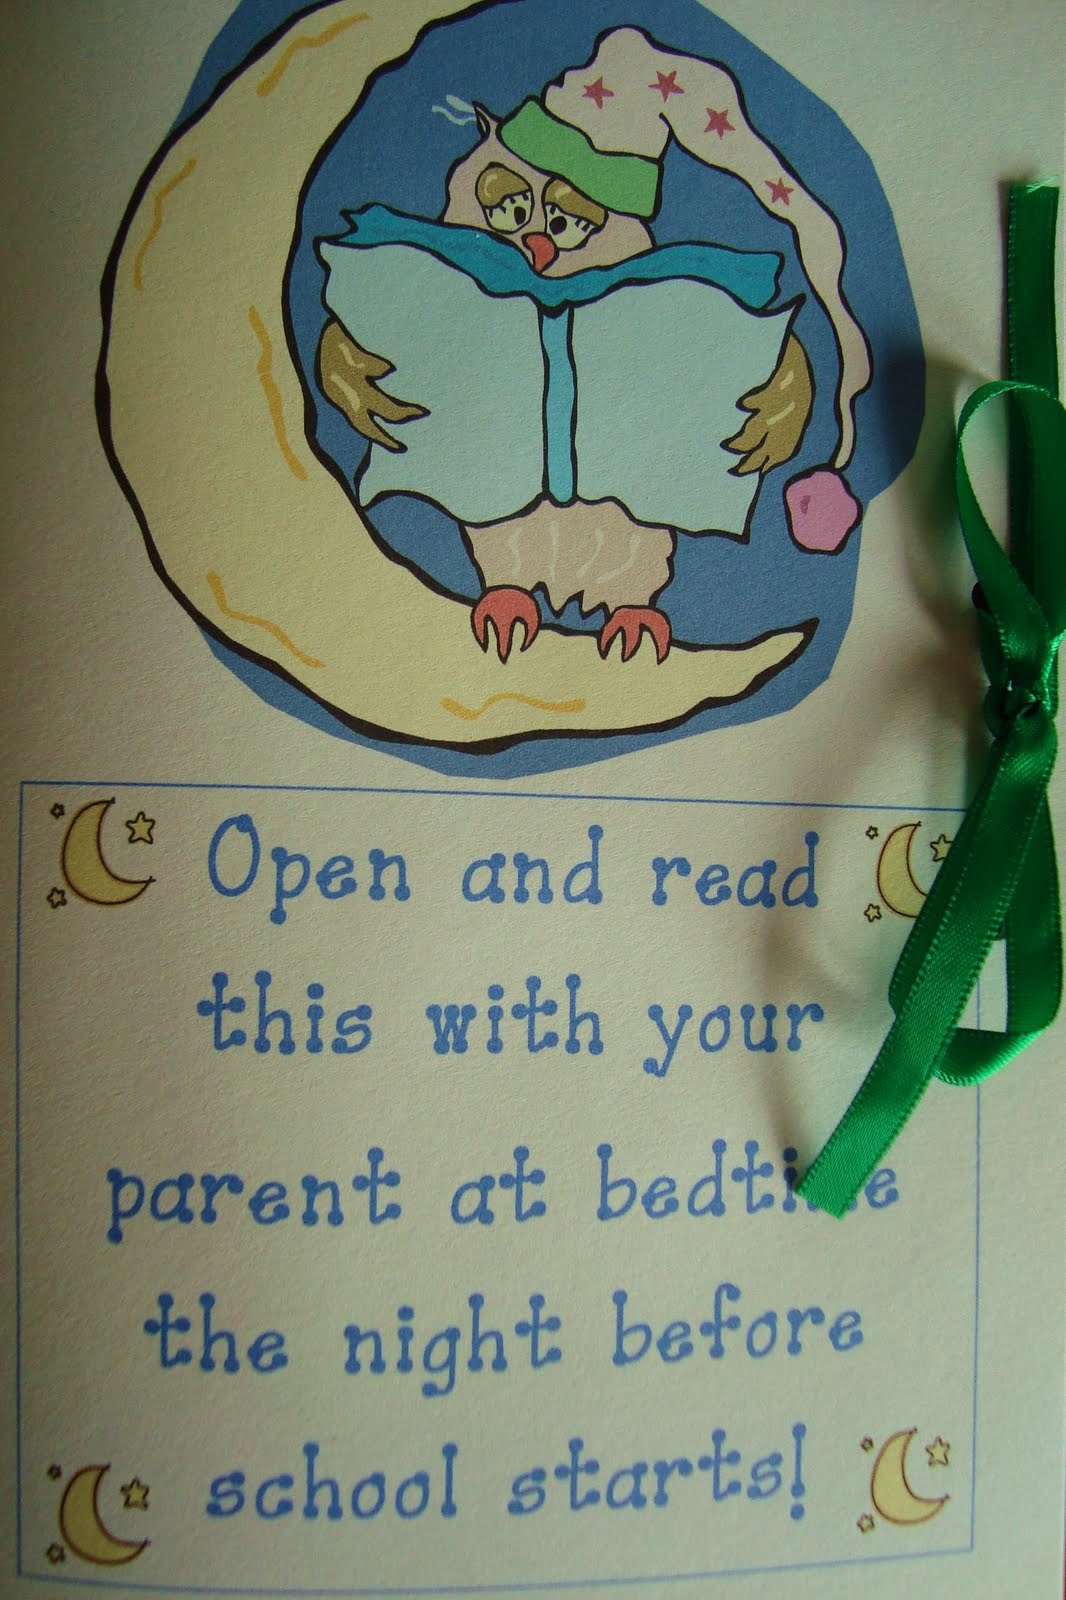 Open and read
this with your
parent at bedtime
the night before
school starts!